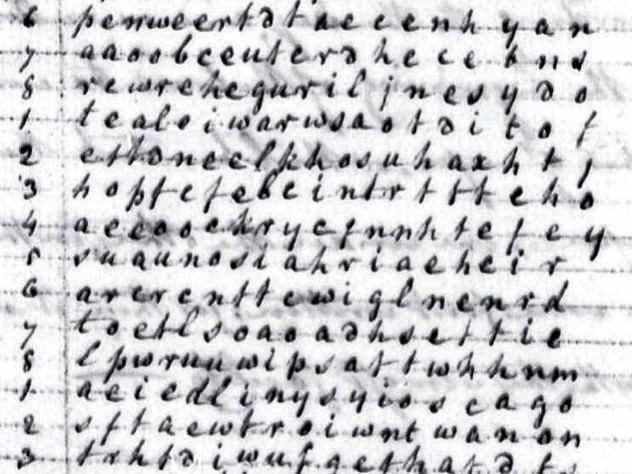 6 penweertdtaeceenhyan
7 aaoobceeuterdhecebns
8 rewreheguriljnesydo
1 tealoiwarwsaotditof
2 ettdneelkhosuhaxhtj
3 hopfefebeintrttteho
4 aeeooekrycqnnhtefey
5 suaunosiahriaeheir
6 arcrcnttewiglnenrd
7 toetlsoaoadhsettie
8 lpwruuwipsattwhhnm
1 aeiedlinysyioscago
2 sftaewtroiwntwanon